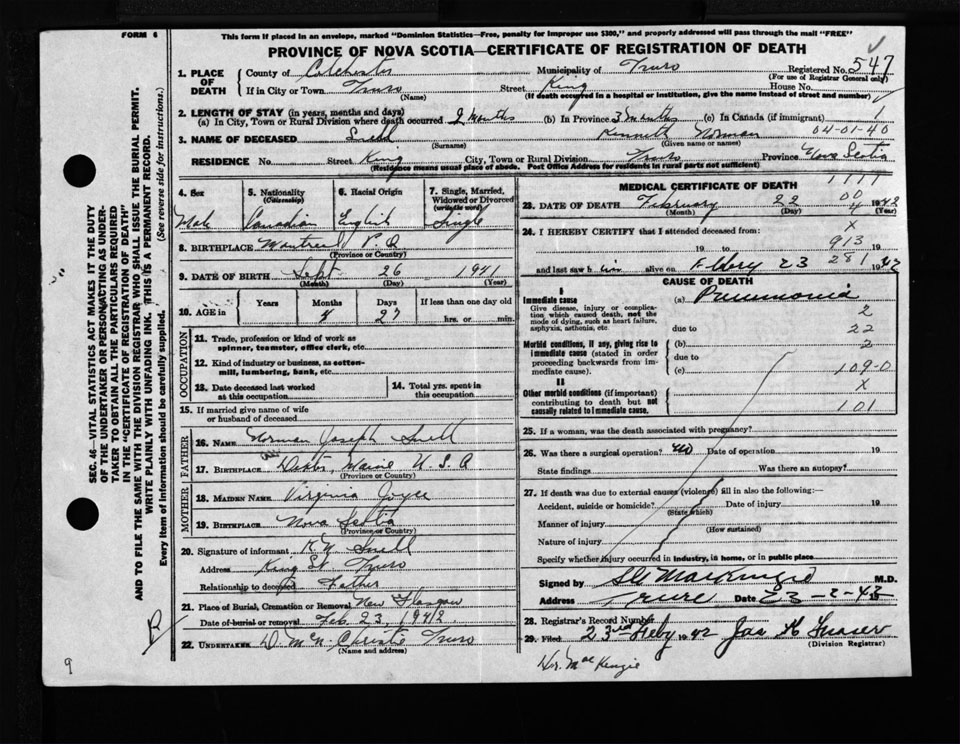 FORM 6
This form if placed in an envelope, marked "Dominion Statistics—Free, penalty for improper use $300," and properly addressed will pass through the mail "FREE"
PROVINCE OF NOVA SCOTIA—CERTIFICATE OF REGISTRATION OF DEATH
1. PLACE OF DEATH County of Colchester Municipality of Truro Registered No. 547
(For use of Registrar General only)
If in City or Town Truro Street King House No.
(Name) (If death occurred in a hospital or institution, give the name instead of street and number)
2. LENGTH OF STAY (in years, months and days)
(a) In City, Town or Rural Division where death occurred 2 Months (b) In Province 3 months (c) In Canada (if immigrant) 1
3. NAME OF DECEASED Snell Kenneth Norman 04-01-40
(Surname) (Given name or names)
RESIDENCE No. Street King City, Town or Rural Division Truro Province Nova Scotia
(Residence means usual place of abode. Post Office Address for residents in rural parts not sufficient)
4. Sex 5. Nationality (Citizenship) 6. Racial Origin 7. Single, Married, Widowed or Divorced (write the word)
Male Canadian English Single
8. BIRTHPLACE Montreal P.Q
(Province or Country)
9. DATE OF BIRTH Sept 26 1941
(Month) (Day) (Year)
10. AGE in Years Months Days If less than one day old
4 27 hrs. or min.
OCCUPATION
11. Trade, profession or kind of work as spinner, teamster, office clerk, etc.
12. Kind of industry or business, as cotton-mill, lumbering, bank, etc.
13. Date deceased last worked at this occupation
14. Total yrs. spent in this occupation
15. If married give name of wife or husband of deceased
FATHER
16. NAME Norman Joseph Snell
17. BIRTHPLACE Maine U.S.A
(Province or Country)
MOTHER
18. MAIDEN NAME Virginia Joyce
19. BIRTHPLACE Nova Scotia
(Province or Country)
20. Signature of informant Snell
Address King St. Truro
Relationship to deceased Father
21. Place of Burial, Cremation or Removal New Glasgow
Date of burial or removal Feb. 23, 1942
22. UNDERTAKER Christie Truro
(Name and address)
MEDICAL CERTIFICATE OF DEATH
1111
00
23. DATE OF DEATH February 22 1942
(Month) (Day) (Year)
4
24. I HEREBY CERTIFY that I attended deceased from:
X
19 to 913 19
281
and last saw h im alive on 23 1942
CAUSE OF DEATH
I
Immediate cause
Give disease, injury or complication which caused death, not the mode of dying, such as heart failure, asphyxia, asthenia, etc
(a) Pneumonia
2
due to
22
Morbid conditions, if any, giving rise to immediate cause (stated in order proceeding backwards from immediate cause).
(b) 2
due to
(c) 109-0
II
X
Other morbid conditions (if important) contributing to death but not causally related to immediate cause.
101
25. If a woman, was the death associated with pregnancy?
26. Was there a surgical operation? no Date of operation 19
State findings Was there an autopsy?
27. If death was due to external causes (violence) fill in also the following:—
Accident, suicide or homicide? Date of injury 19
(State which)
Manner of injury
(How sustained)
Nature of injury
Specify whether injury occurred in industry, in home, or in public place
Signed by MacKenzie M.D.
Address Truro Date 23-2-42
28. Registrar's Record Number
29. Filed 23rd Feby 1942 Jas
(Division Registrar)
Dr. MacKenzie
SEC. 46—VITAL STATISTICS ACT MAKES IT THE DUTY
OF THE UNDERTAKER OR PERSON ACTING AS UNDER-
TAKER TO OBTAIN ALL THE PARTICULARS REQUIRED
IN THE "CERTIFICATE OF REGISTRATION OF DEATH"
AND TO FILE THE SAME WITH THE DIVISION REGISTRAR WHO SHALL ISSUE THE BURIAL PERMIT.
WRITE PLAINLY WITH UNFADING INK. THIS IS A PERMANENT RECORD.
Every item of information should be carefully supplied. (See reverse side for instructions.)
R
9